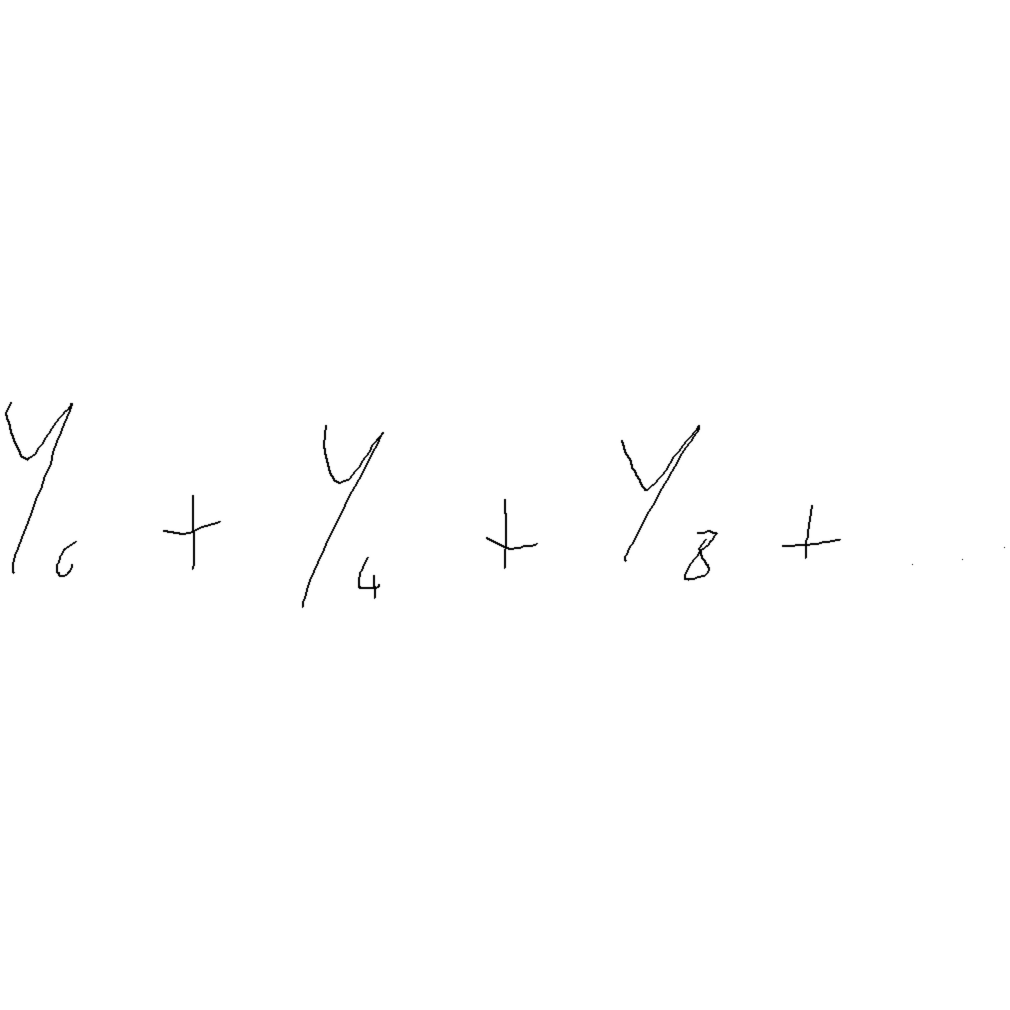 y_6 + y_4 + y_8 + ...